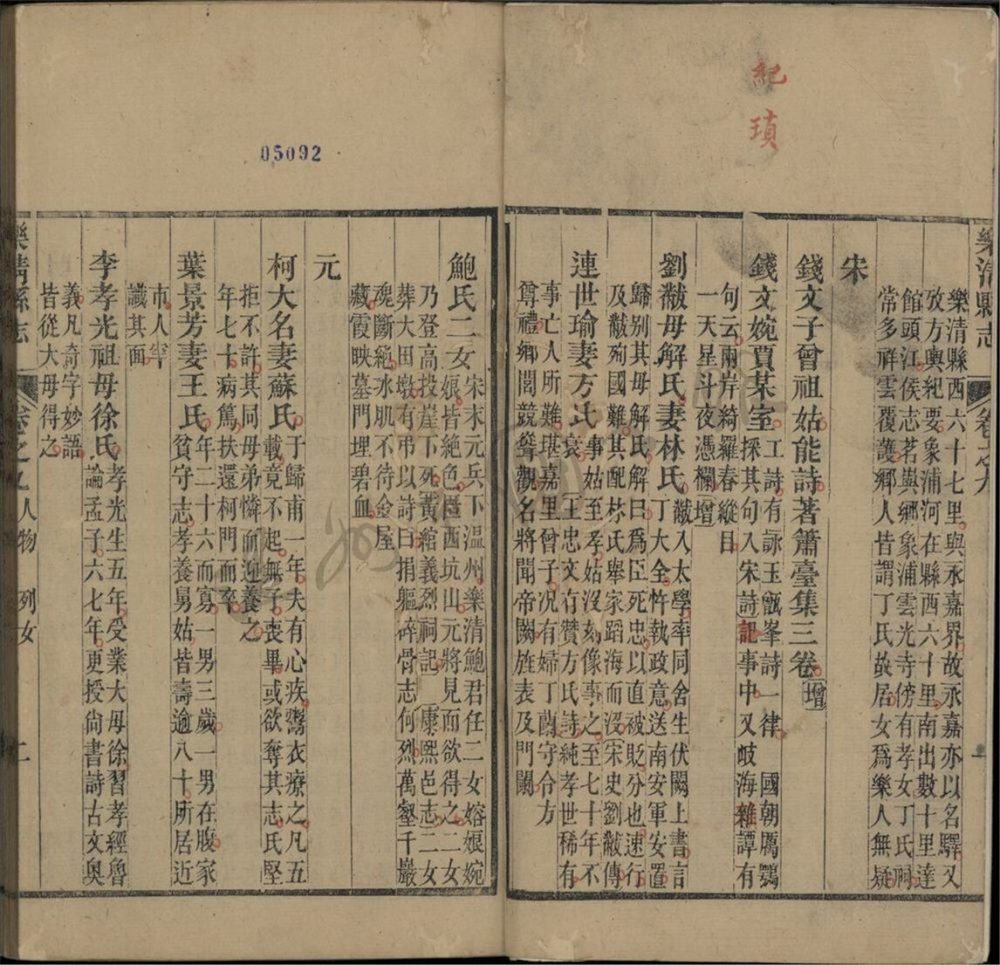 紀瑣
樂清縣志
卷之九
樂清縣西六十七里與永嘉界故永嘉亦以名驛又
攷方輿紀要象浦河在縣西六十里南出數十里達
館頭江侯志茗嶼鄉象浦雲光寺傍有孝女丁氏祠
常多祥雲覆護鄉人皆謂丁氏故居女為樂人無疑
宋
錢文子曾祖姑能詩著簫臺集三卷增
錢文婉賈某室工詩有詠玉甑峯詩一律 國朝厲鶚
採其句入宋詩記事中又岐海雜譚有
句云兩岸綺羅春縱目
一天星斗夜憑欄增
劉黻母解氏妻林氏丁大全忤執政意送南安軍安置
黻入太學率同舍生伏闕上書言
歸別其母解氏解曰為臣死忠以直被貶分也速行
及黻殉國難其配林氏舉家蹈海而沒宋史劉黻傳
連世瑜妻方氏事姑至孝姑沒刻像事之至七十年不
衰王忠文有贊方氏詩純孝世稀有
事亡人所難堪嘉里曾子況有婦丁蘭守令方
尊禮鄉閭競聳觀名將聞帝闕旌表及門闌
鮑氏二女宋末元兵下溫州樂清鮑君任二女嫆娘婉
娘皆絕色匿西坑山元將見而欲得之二女
乃登高投崖下死黃綰義烈祠記康熙邑志二女
葬大田墩有弔以詩曰捐軀碎骨志何烈萬壑千巖
魂斷絕氷肌不待金屋
藏霞映墓門埋碧血
元
柯大名妻蘇氏于歸甫一年夫有心疾鬻衣療之凡五
載竟不起無子喪畢或欲奪其志氏堅
拒不許其同母弟憐而迎養之
年七十病篤扶還柯門而卒
葉景芳妻王氏年二十六而寡一男三歲一男在腹家
貧守志孝養舅姑皆壽逾八十所居近
市人罕
識其面
李孝光祖母徐氏孝光生五年受業大母徐習孝經魯
論孟子六七年更授尙書詩古文奧
義凡奇字妙語
皆從大母得之
樂清縣志
卷之九 人物 列女
二
05092